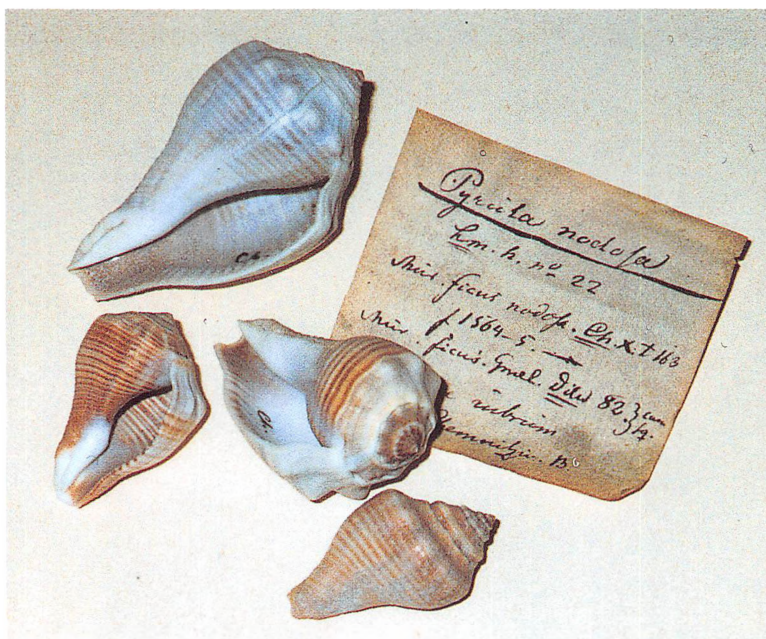 Pyrula nodosa
Lm. h. no 22
Mur. ficus nodosa. Ch. X. t 163
f 1564-5. —
Mur. ficus. Gmel. 82
rubrum
Ch.